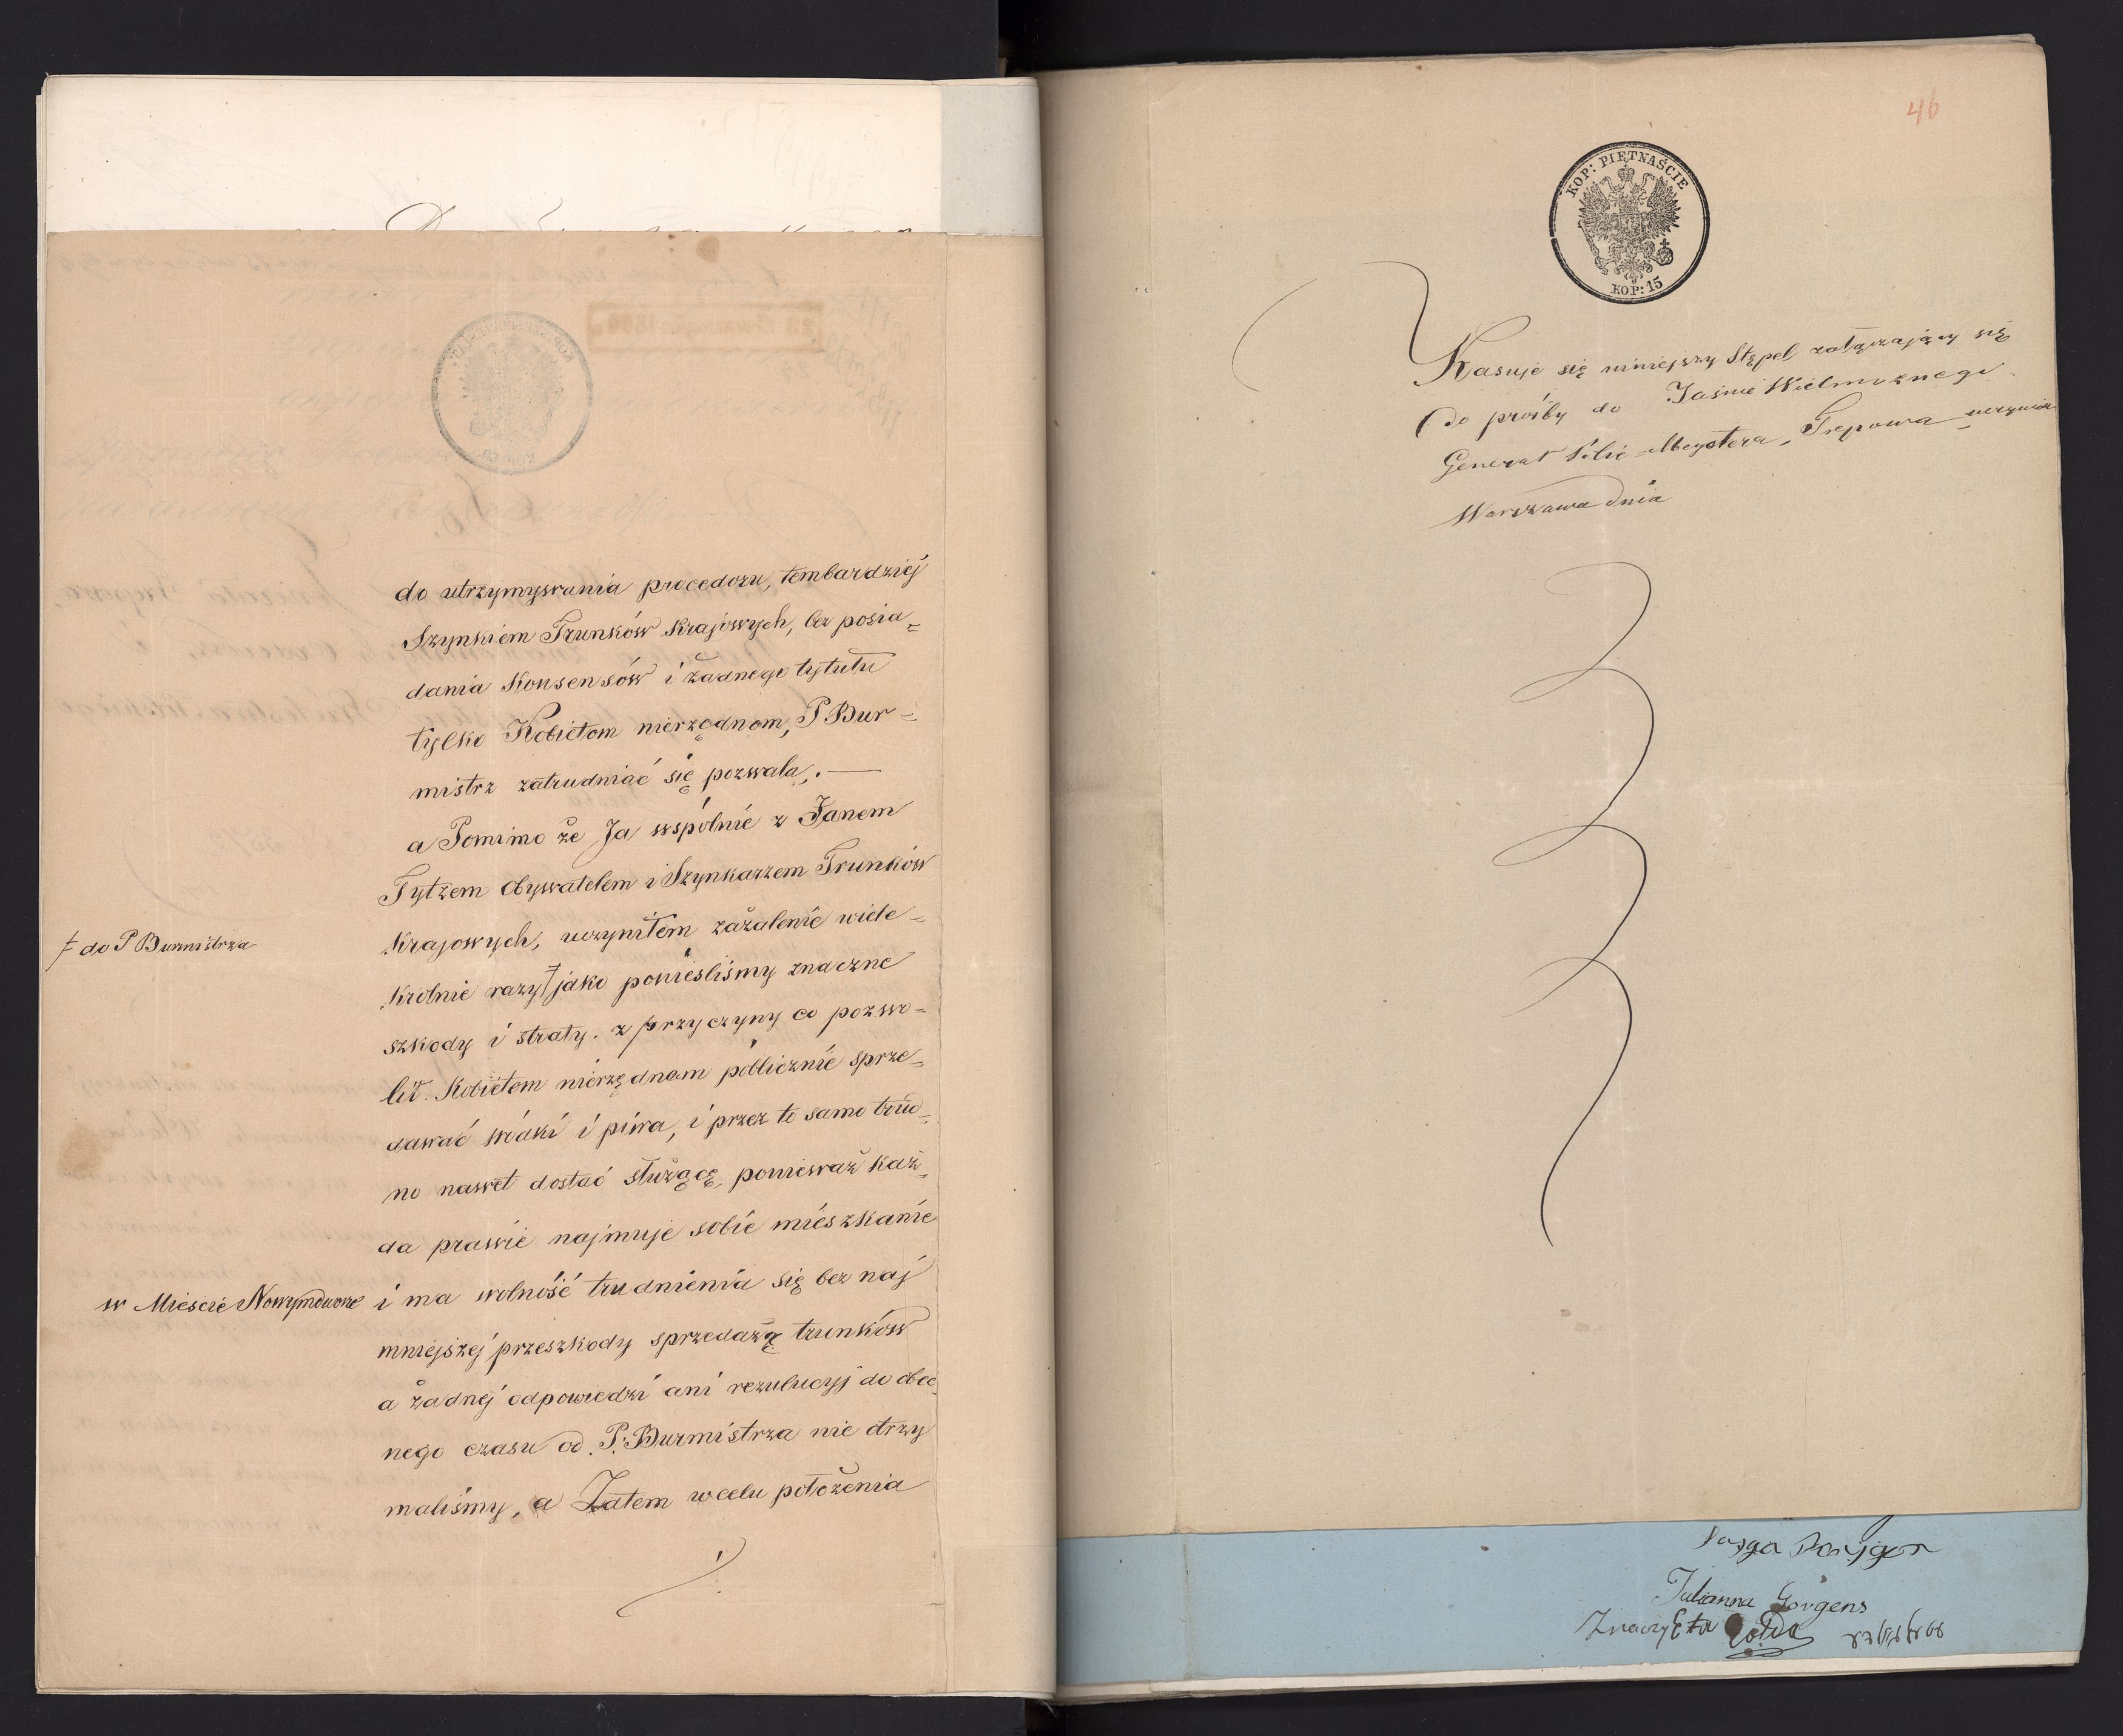 do utrzymywania procederu, tembardziej
Szynkiem Trunków Krajowych, bez posia=
dania Konsensów i żadnego tytułu
tylko Kobietom nierządnom, P Bur=
mistrz zatrudniać się pozwala,. —
a Pomimo że Ja wspólnie z Janem
Tytzem Obywatelem i Szynkarzem Trunków
Krajowych, uczyniłem zażalenie wiele=
‡ do P Burmistrza
krotnie razy ‡ jako ponieslismy znaczne
szkody i straty. z przyczyny co pozwo=
lił. Kobietom nierządnam poblicznie sprze=
dawać wódki i piwa, i przez to samo trud=
no nawet dostać służącę, ponieważ każ=
da prawie najmuje sobie mieszkanie
w Mieście Nowymdworze i ma wolność trudnienia się bez naj
mniejszej przeszkody sprzedażą trunków
a żadnej odpowiedzi ani rezulucyj do obec
nego czasu od P. Burmistrza nie otrzy
maliśmy, a Zatem w celu położenia
46
KOP: PIĘTNAŚCIE
KOP: 15
Kasuje się niniejszy Stępel załączający się
do prośby do Jaśnie Wielmożnego
Generał Policmeystera, Trepowa
Warszawa dnia
Julianna Görgens